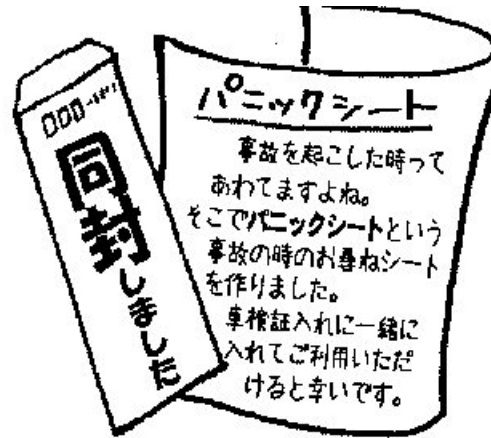 同封しました
パニックシート
事故を起こした時って
あわてますよね。
そこでパニックシートという
事故の時のお尋ねシート
を作りました。
車検証入れに一緒に
入れてご利用いただ
けると幸いです。